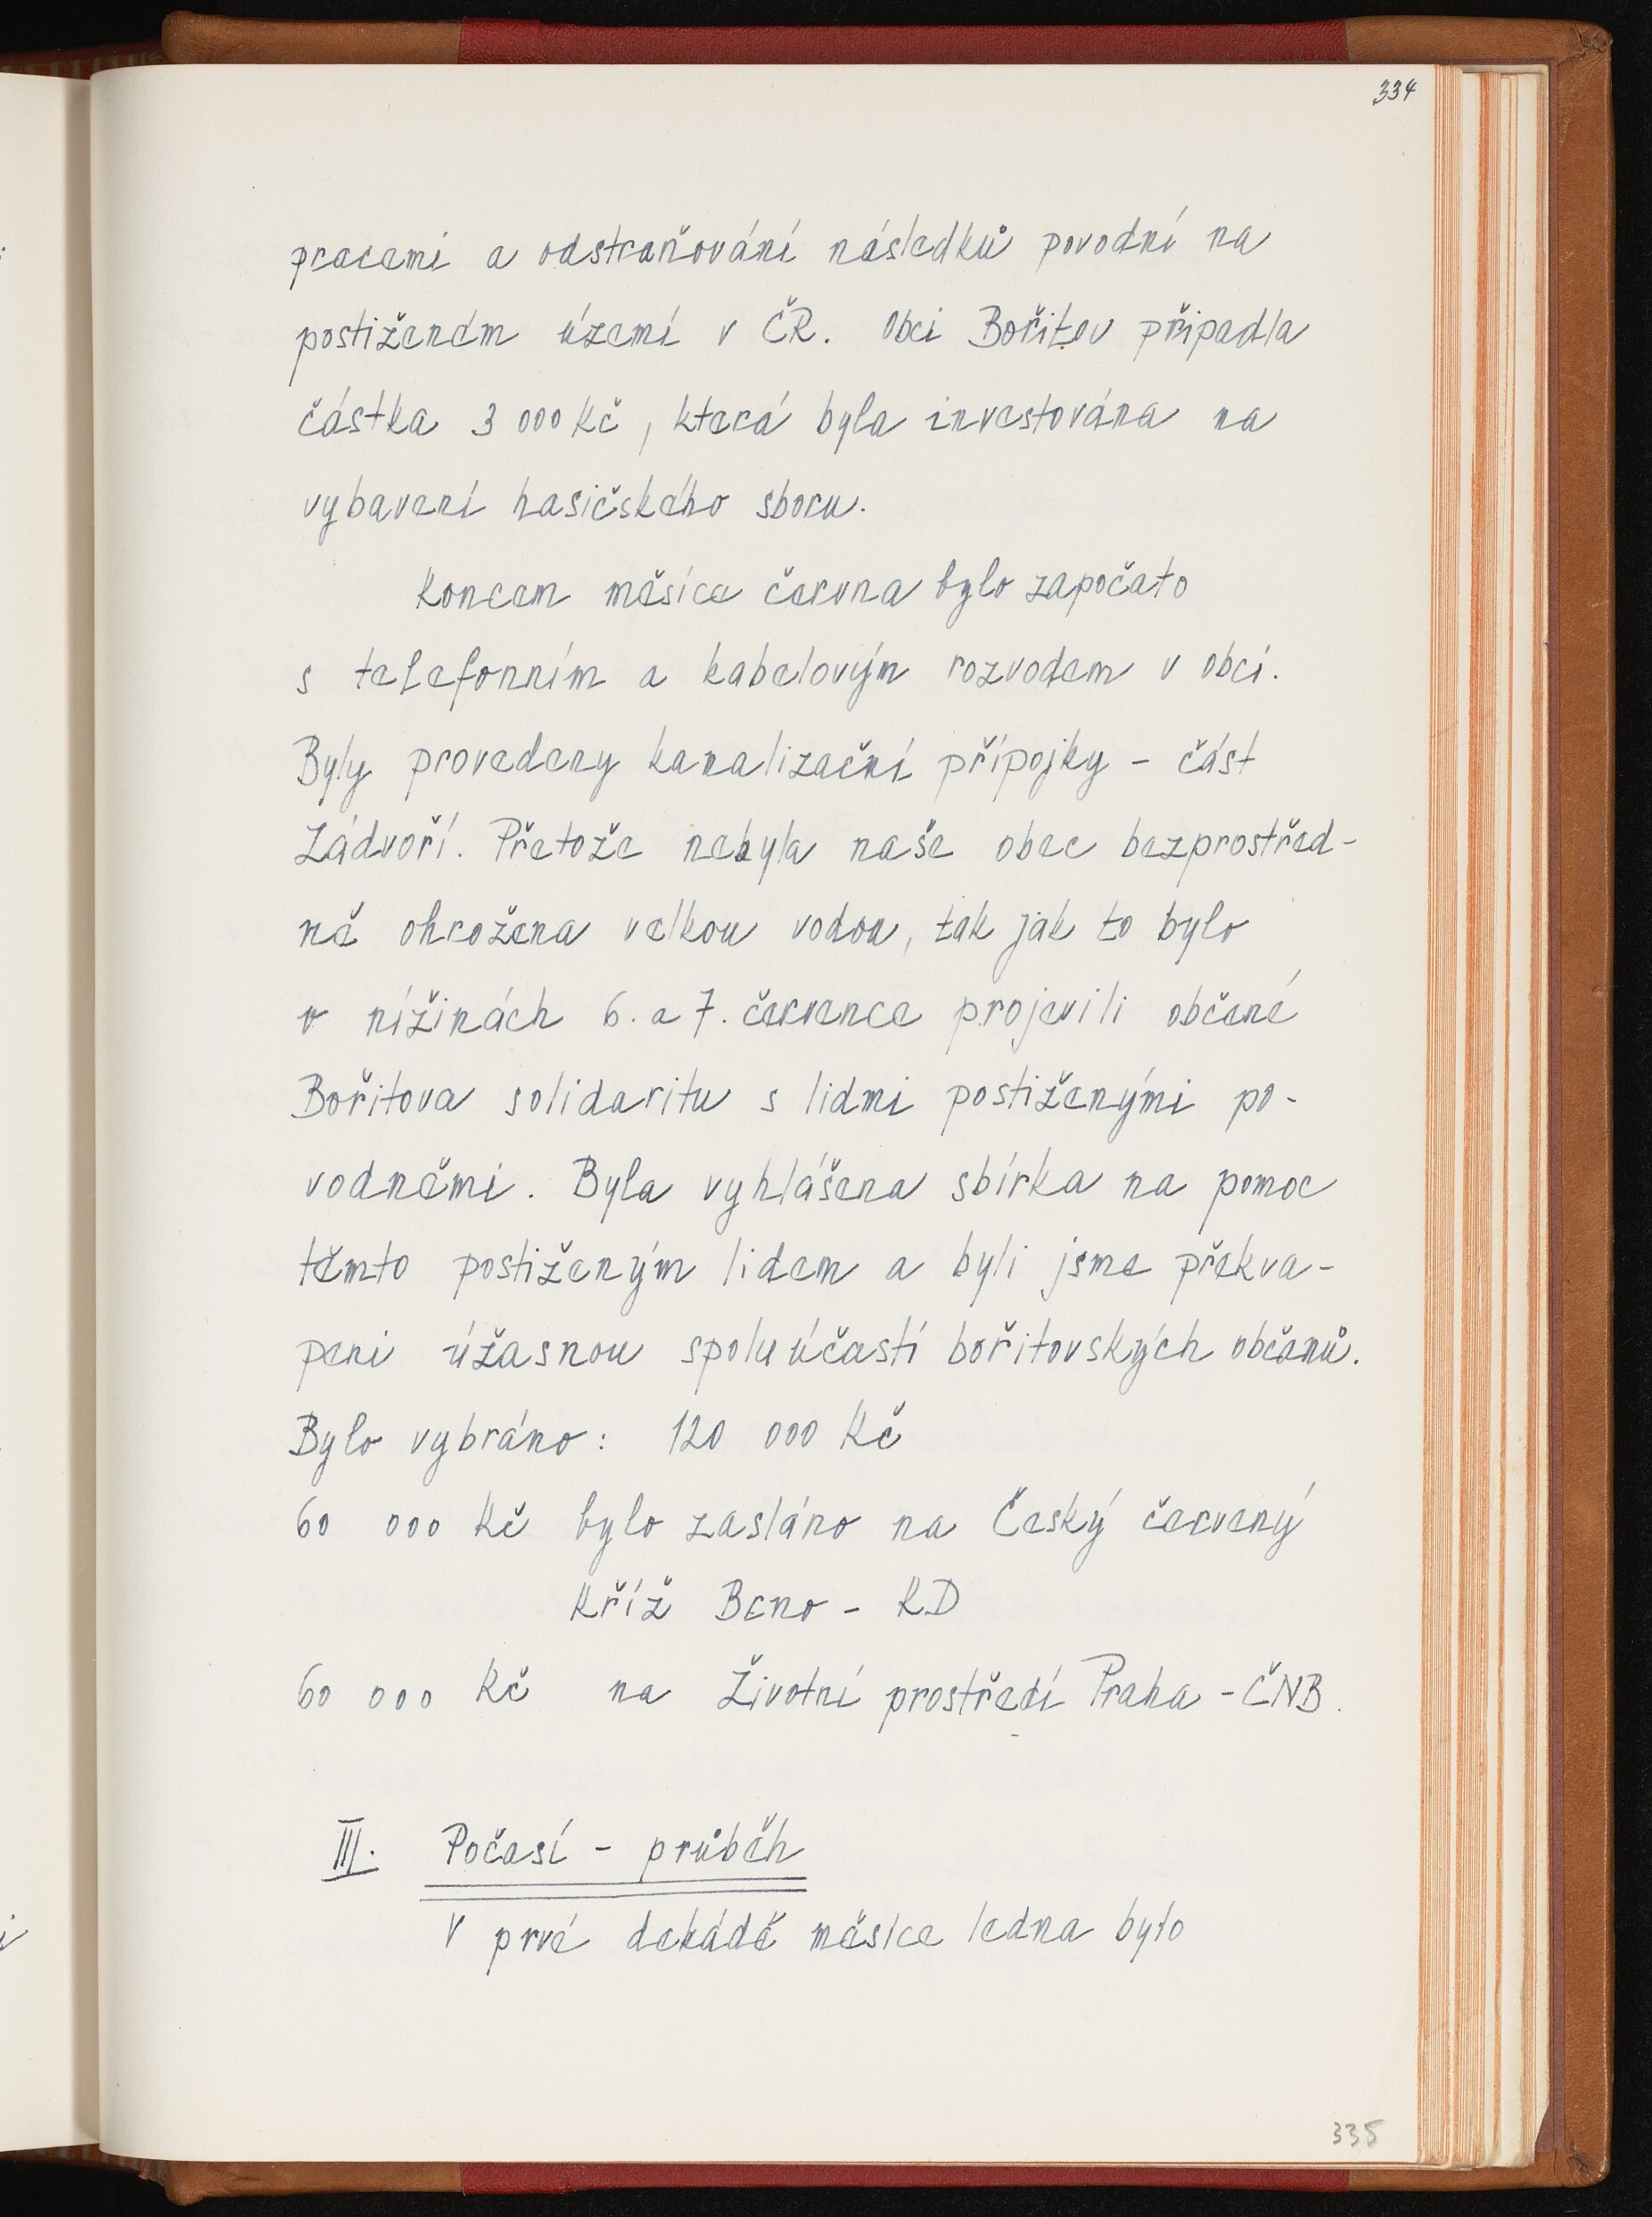 334
pracemi a odstraňování následků povodní na
postiženém území v ČR. Obci Bořitov připadla
částka 3 000 Kč, která byla investována na
vybavení hasičského sboru.
Koncem měsíce června bylo započato
s telefonním a kabelovým rozvodem v obci.
Byly provedeny kanalizační přípojky - část
Zádvoří. Přetože nebyla naše obec bezprostřed-
ně ohrožena velkou vodou, tak jak to bylo
v nížinách 6. a 7. července projevili občené
Bořitova solidaritu s lidmi postiženými po-
vodněmi. Byla vyhlášena sbírka na pomoc
těmto postiženým lidem a byli jsme překva-
peni úžasnou spoluúčastí bořitovských občanů.
Bylo vybráno: 120 000 Kč
60 000 Kč bylo zasláno na Český červený
Kříž Brno - KD
60 000 Kč na Životní prostředí Praha - ČNB.
III. Počasí - průběh
V prvé dekádě měsíce ledna bylo
335